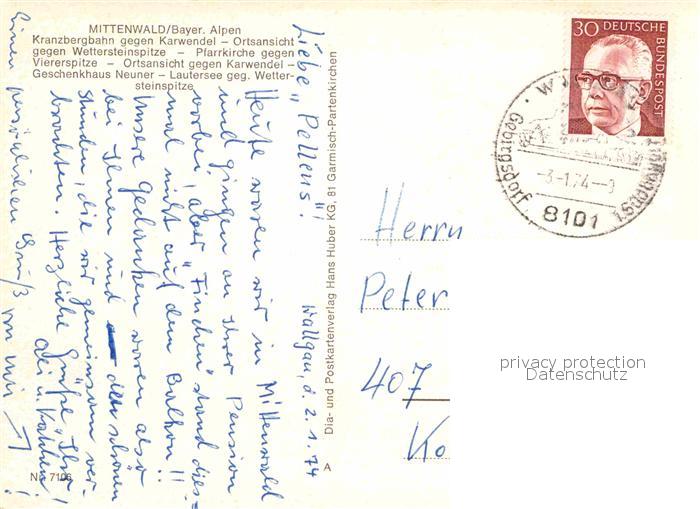 MITTENWALD/Bayer. Alpen
Kranzbergbahn gegen Karwendel – Ortsansicht
gegen Wettersteinspitze – Pfarrkirche gegen
Viererspitze – Ortsansicht gegen Karwendel –
Geschenkhaus Neuner – Lautersee geg. Wetter-
steinspitze
Wallgau, d. 2. 1. 74
Liebe "Pelleus"!
Heute waren wir in Mittenwald
und gingen an Ihrer Pension
vorbei, aber "Finchen" stand dies-
mal nicht auf dem Balkon!!
Unsere Gedanken waren also
bei Ihnen und den schönen
Stunden, die wir gemeinsam ver-
brachten. Herzliche Grüße, Ihre
Einen persönlichen Gruß von mir
Dia- und Postkartenverlag Hans Huber KG, 81 Garmisch-Partenkirchen
A
30 DEUTSCHE
BUNDESPOST
Gebirgsdorf
-3-1.74-9
8101
Herrn
Peter
407
Ko
privacy protection
Datenschutz
No 7106